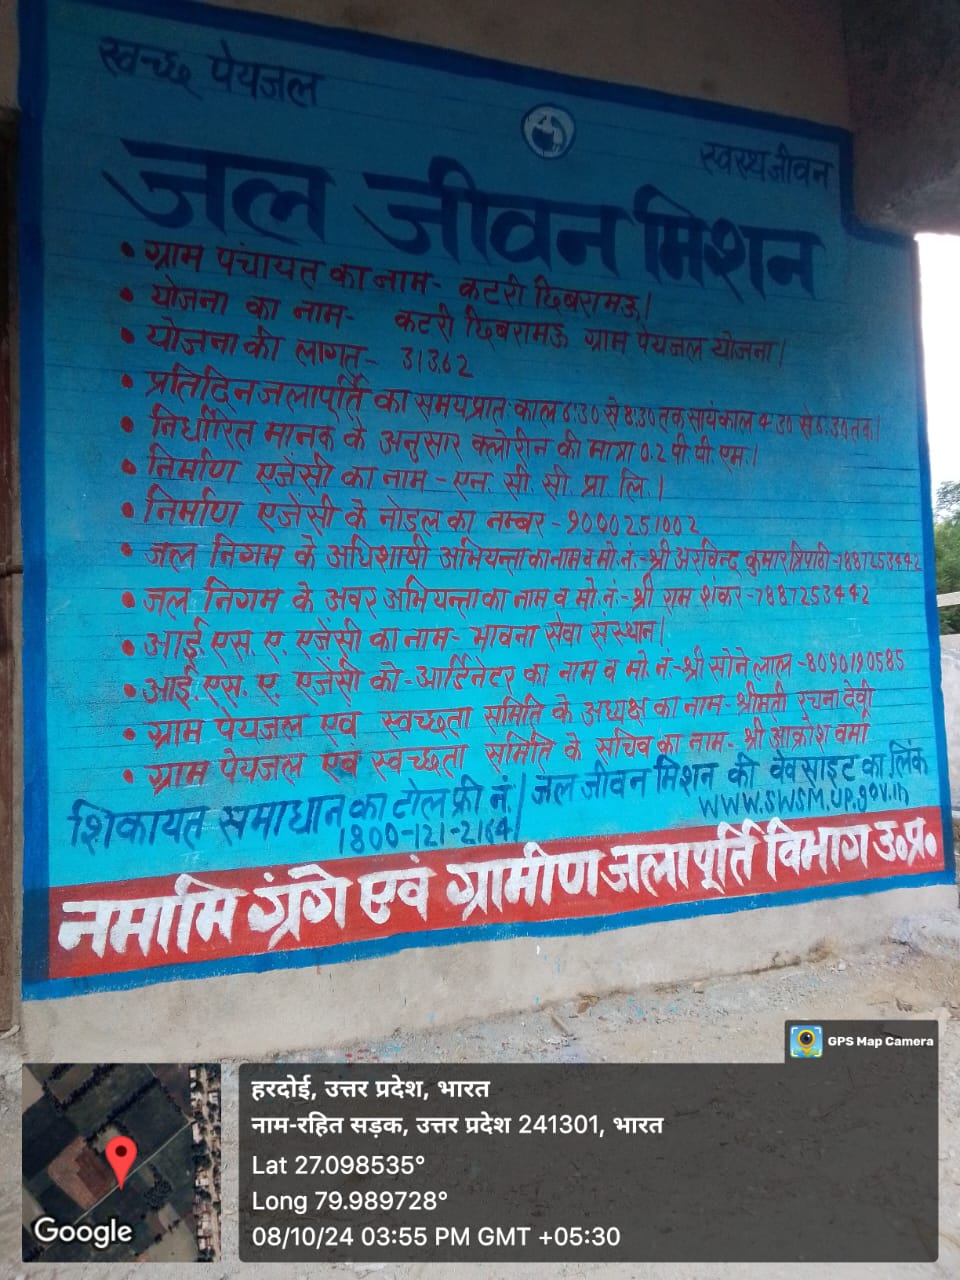 स्वच्छ पेयजल
स्वस्थ जीवन
जल जीवन मिशन
• ग्राम पंचायत का नाम- कटरी छिबरामऊ।
• योजना का नाम- कटरी छिबरामऊ ग्राम पेयजल योजना।
• योजना की लागत- 313.62
• प्रतिदिन जलापूर्ति का समय प्रातः काल 6:30 से 8:30 तक सायंकाल 4:30 से 6:30 तक।
• निर्धारित मानक के अनुसार क्लोरीन की मात्रा 0.2 पी.पी.एम.।
• निर्माण एजेंसी का नाम - एन. सी. सी. प्रा. लि.।
• निर्माण एजेंसी के नोडल का नम्बर - 9000251002
• जल निगम के अधिशाषी अभियन्ता का नाम व मो.नं.- श्री अरविन्द कुमार त्रिपाठी-7887253442
• जल निगम के अवर अभियन्ता का नाम व मो.नं.- श्री राम शंकर-7887253442
• आई.एस.ए. एजेंसी का नाम- भावना सेवा संस्थान।
• आई.एस.ए. एजेंसी को-आर्डिनेटर का नाम व मो.नं-श्री सोने लाल -8090190585
• ग्राम पेयजल एव स्वच्छता समिति के अध्यक्ष का नाम- श्रीमती रचना देवी
• ग्राम पेयजल एव स्वच्छता समिति के सचिव का नाम- श्री आक्रोश वर्मा
शिकायत समाधान का टोल फ्री नं.। जल जीवन मिशन की वेवसाइट का लिंक
1800-121-2164। www.swsm.up.gov.in
नमामि गंगे एवं ग्रामीण जलापूर्ति विभाग उ०प्र०
GPS Map Camera
हरदोई, उत्तर प्रदेश, भारत
नाम-रहित सड़क, उत्तर प्रदेश 241301, भारत
Lat 27.098535°
Long 79.989728°
08/10/24 03:55 PM GMT +05:30
Google